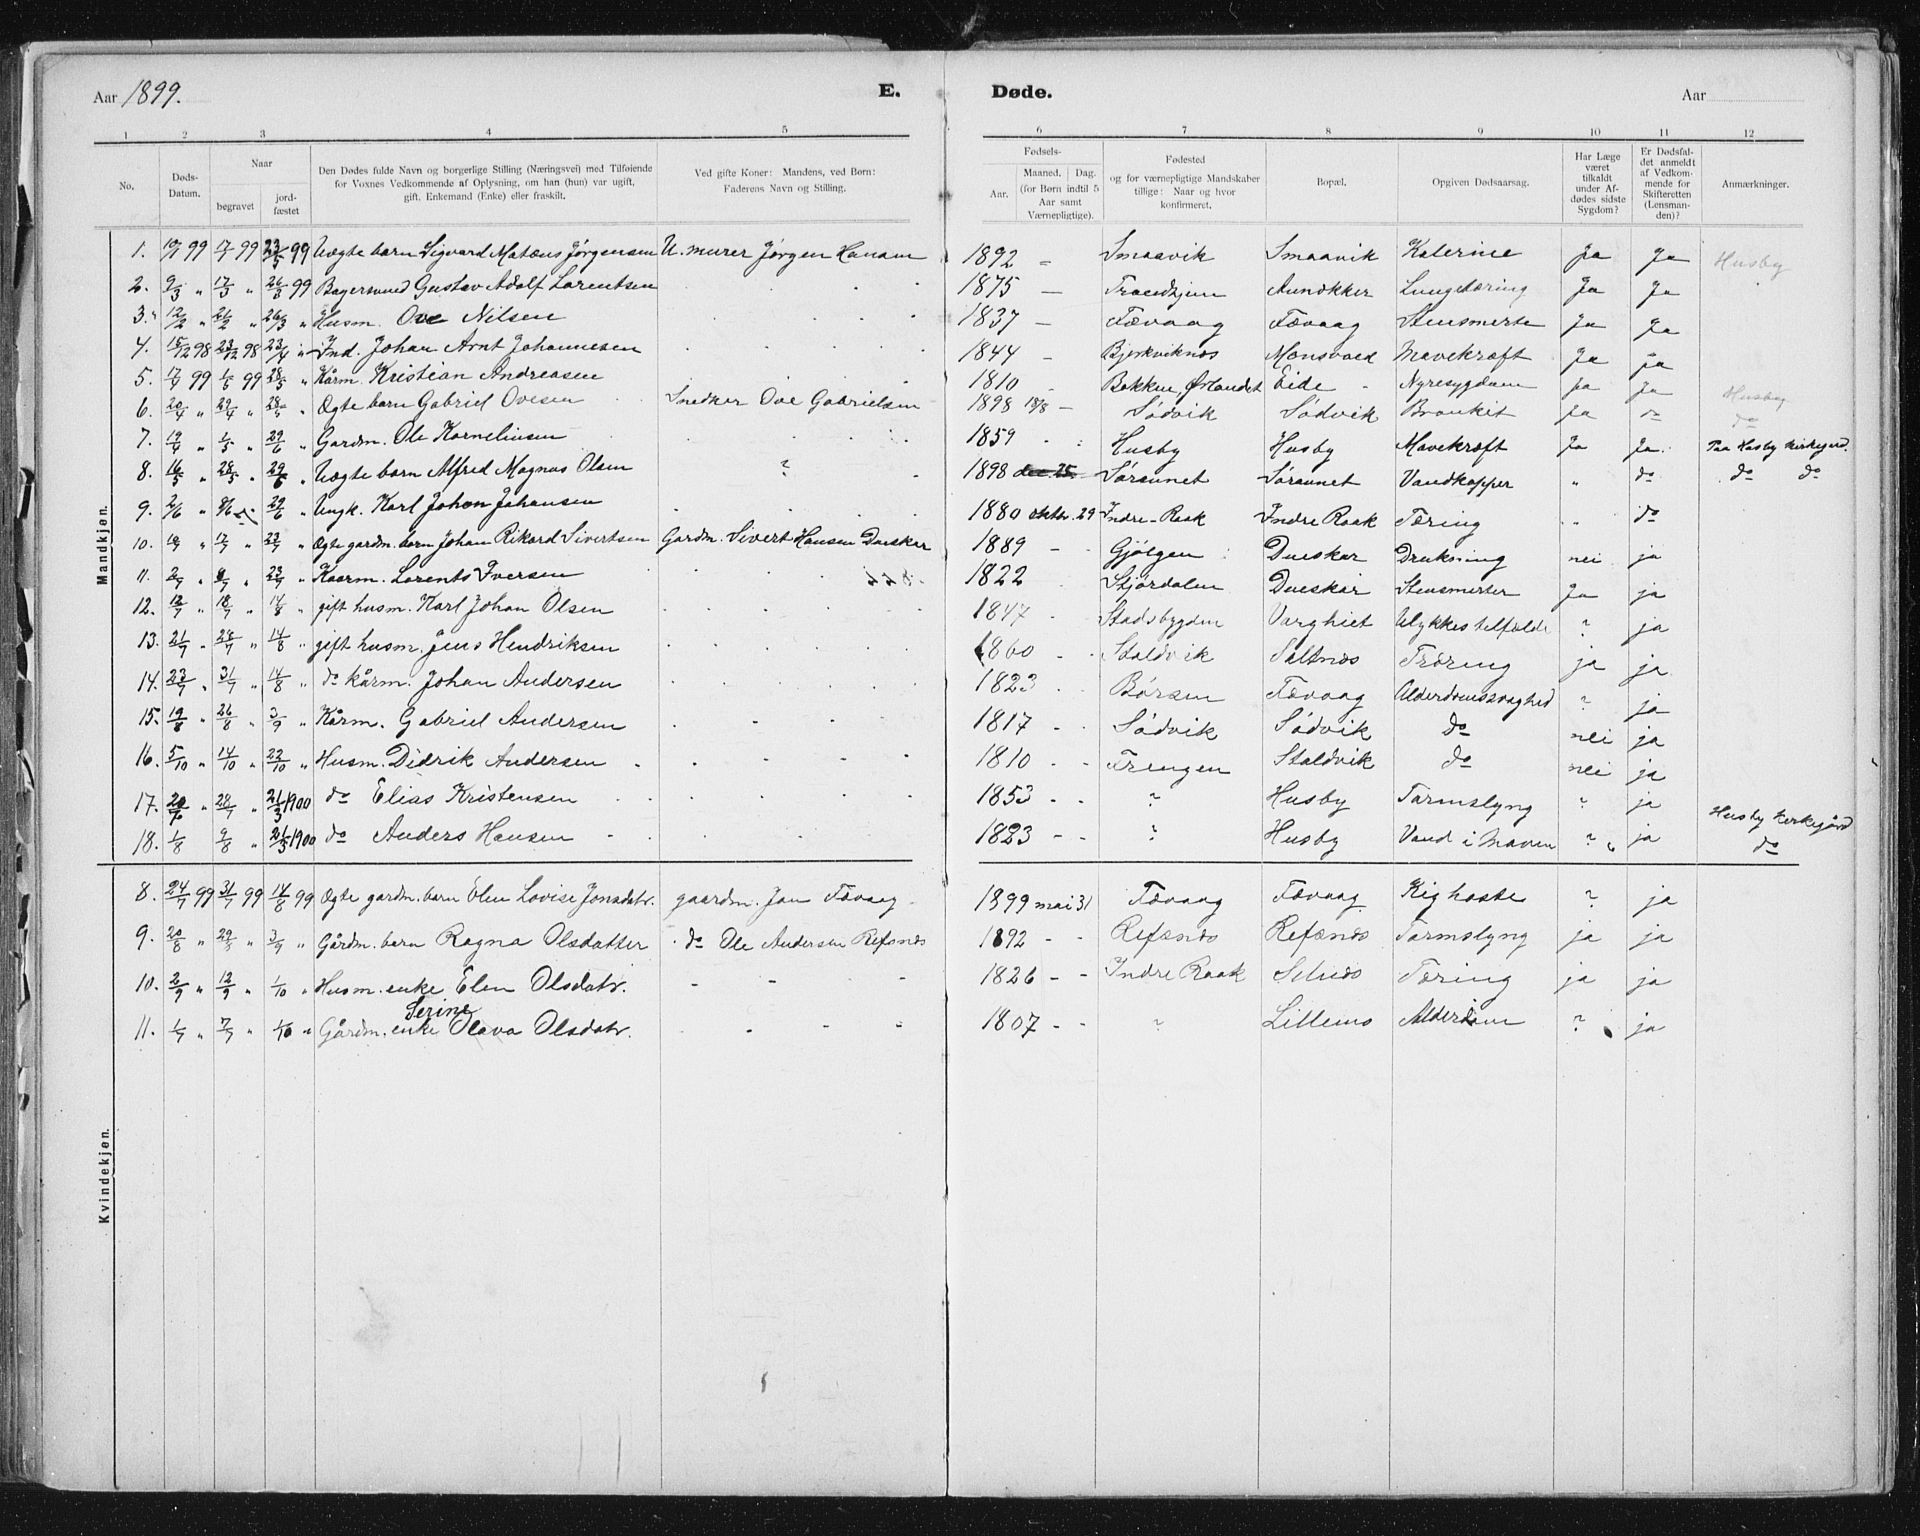 Aar 1899. E. Døde. Aar
1 2 3 4 5 6 7 8 9 10 11 12
No. Døds-Datum. Naar begravet jord-fæstet Den Dødes fulde Navn og borgerlige Stilling (Næringsvei) med Tilføiende for Voxnes Vedkommende af Oplysning, om han (hun) var ugift, gift, Enkemand (Enke) eller fraskilt. Ved gifte Koner: Mandens, ved Børn: Faderens Navn og Stilling. Fødsels- Aar. Maaned. Dag. (for Børn indtil 5 Aar samt Værnepligtige). Fødested og for værnepligtige Mandskaber tillige: Naar og hvor konfirmeret. Bopæl. Opgiven Dødsaarsag. Har Læge været tilkaldt under Afdødes sidste Sygdom? Er Dødsfaldet anmeldt af Vedkommende for Skifteretten (Lensmanden)? Anmærkninger.
Mandkjøn.
1. 99 99 23/5 99 Uægte barn Sigvard Matæus Jørgensen U. murer Jørgen Hanam 1892 - Smaavik Smaavik Katerine Ja Ja Husby
2. 9/3 " 17/3 " 26/3 99 Bagersvend Gustav Adolf Lorentsen 1875 - Trondhjem Aunekker Lungetæring Ja Ja
3. 12/2 " 21/2 " 26/3 " Husm. Ove Nilsen 1837 - Fævaag Fævaag Stensmerte Ja Ja
4. 15/12 98 23/12 98 23/4 " Ind. Johan Arnt Johannesen 1844 - Bjerkviknes Monsvoed Mavekræft Ja Ja
5. 17/4 99 1/5 99 28/5 " Kårm. Kristian Andreasen 1810 - Bakken Ørlandet Eide Nyresygdom Ja Ja
6. 20/4 " 29/4 " 28/5 " Ægte barn Gabriel Ovesen Snedker Ove Gabrielsen 1898 18/8 - Sødvik Sødvik Bronkit ja " Husby
7. 19/4 " 1/5 " 29/6 " Gardm. Ole Korneliusen 1859 Husby Husby Mavekræft Ja Ja Paa Husby kirkegrd.
8. 16/5 " 28/5 " 29/6 " Uægte barn Alfred Magnus Olsen ? 1898 dec. 25 Søraunet Søraunet Vandkopper " do do do
9. 2/6 " 8/6 " 29/6 " Ungk. Karl Johan Johansen 1880 oktbr. 29 Indre-Raak Indre Raak Tæring " do
10. " 17/7 " 23/7 " Ægte gardm. barn Johan Rikard Sivertsen Gardm. Sivert Hansen Dueskar 1889 - Gjølgen Dueskar Drukning nei ja
11. 2/7 " " 23/7 " Kaarm. Lorents Iversen 1822 Stjørdalen Dueskar Stensmerter Ja ja
12. 12/7 " 18/7 " 14/8 " gift husm. Karl Johan Olsen 1847 Stadsbygden Varghiet Ulykkestilfælde ? ja
13. 21/7 " 28/7 " 14/8 " gift husm. Jens Hendriksen 1860 Staldvik Saltnæs Træring ja ja
14. 23/7 " 31/7 " 14/8 " do kårm. Johan Andersen 1823 Børsen Fævaag Alderdomssvaghed ? ja
15. 19/8 " 26/8 " 3/9 " Kårm. Gabriel Andersen 1817 Sødvik Sødvik do nei ja
16. 5/10 " 14/10 " 22/10 " Husm. Didrik Andersen 1810 Frengen Staldvik do nei ja
17. " 28/7 " 21/3 1900 do Elias Kristensen 1853 ? Husby Tarmslyng ? ja Husby kirkegård
18. 1/8 " 9/8 " 21/3 1900 do Anders Hansen 1823 ? Husby Vand i Maven ? " ja do
Kvindekjøn.
8. 24/7 99 31/7 99 14/8 99 Ægte gardm. barn Elen Lovise Jonsdatr. gaardm. Jon Fævaag 1899 mai 31 Fævaag Fævaag Kighoste ? ja
9. 20/8 " 29/8 " 3/9 " Gårdm. barn Ragna Olsdatter do Ole Andersen Refsnæs 1892 - - Refsnæs Refsnæs Tarmslyng ja ja
10. 2/9 " 12/9 " 1/10 " Husm. enke Elen Olsdatr. 1826 - - Indre Raak Selnæs Tæring ja ja
11. 1/7 " 7/7 " 1/10 " Gårdm. enke Serine Olava Olsdatr. 1807 - - " Lillemo Alderdom ? ja